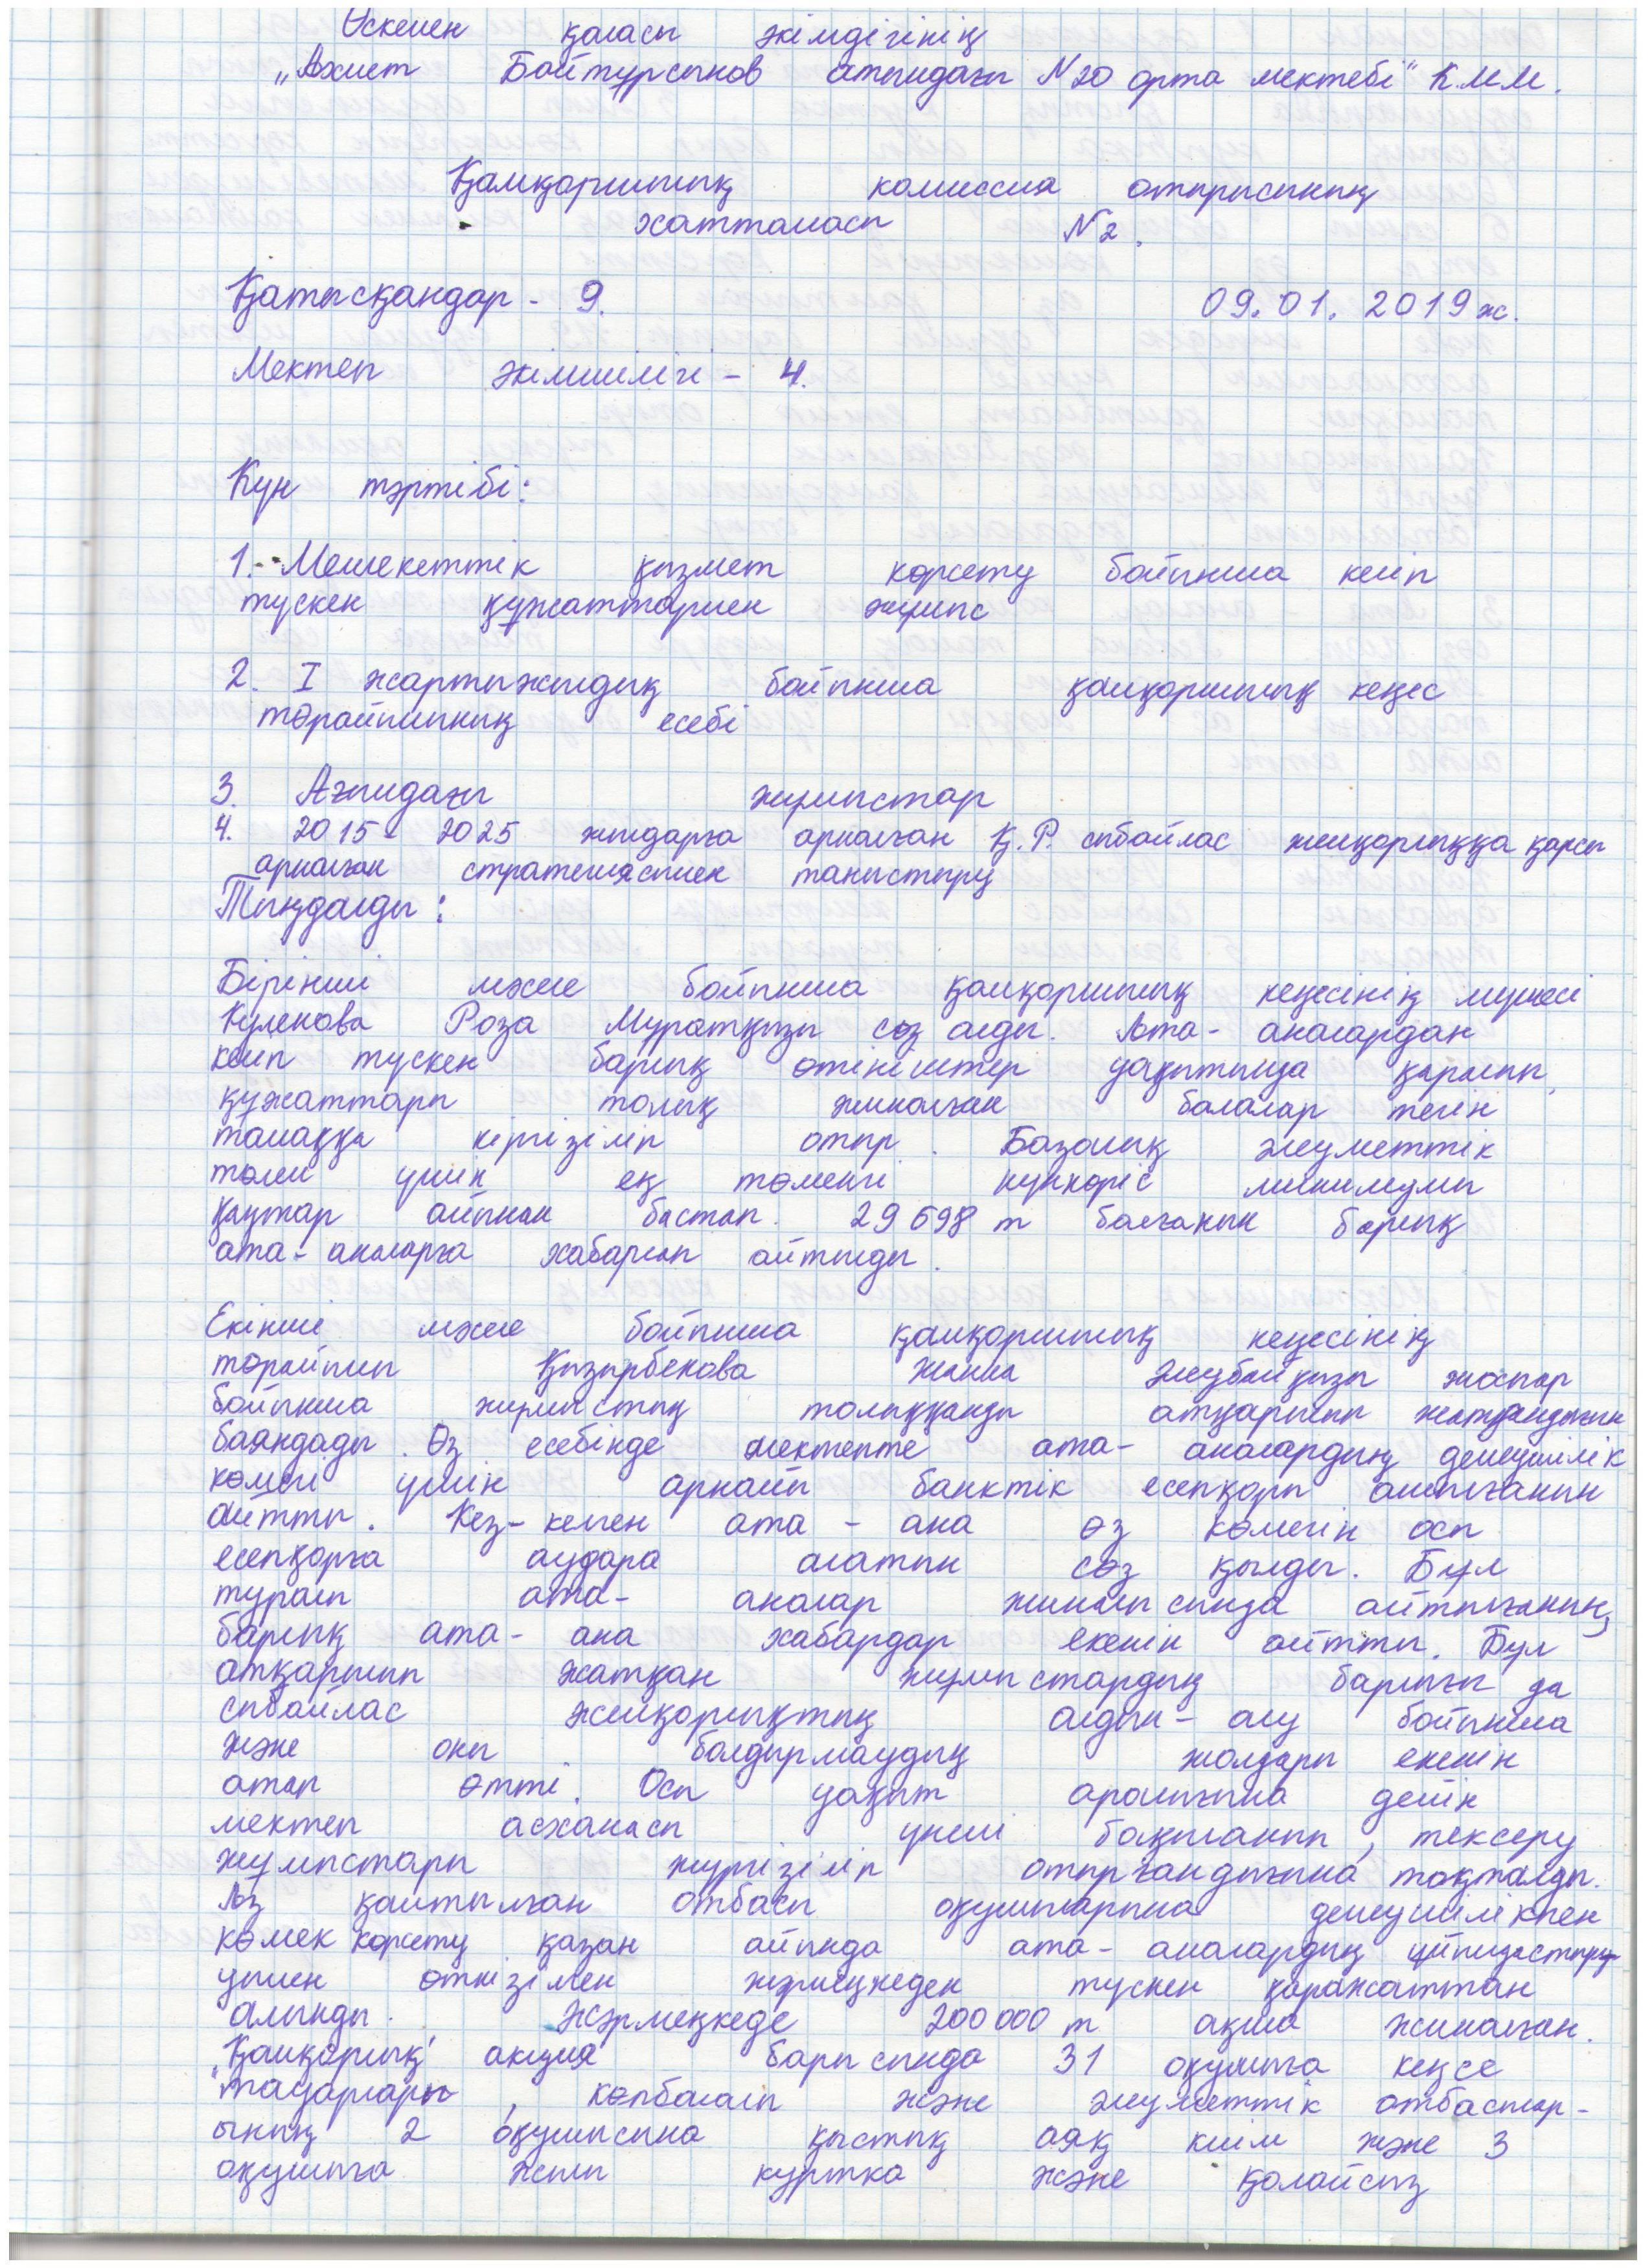 Өскемен қаласы әкімдігінің
„Ахмет Байтұрсынов атындағы №20 орта мектебі" К.М.М.
Қамқоршылық комиссия отырысының
хаттамасы №2.
Қатысқандар - 9. 09.01.2019 ж.
Мектеп әкімшілігі - 4.
Күн тәртібі:
1. Мемлекеттік қызмет көрсету бойынша келіп
түскен құжаттармен жұмыс
2. I жартыжылдық бойынша қамқоршылық кеңес
төрайымының есебі
3. Ағымдағы жұмыстар
4. 2015 - 2025 жылдарға арналған Қ.Р. сыбайлас жемқорлыққа қарсы
арналған стратегиясымен таныстыру
Тыңдалды:
Бірінші мәселе бойынша қамқоршылық кеңесінің мүшесі
Куленова Роза Мұратқызы сөз алды. Ата-аналардан
келіп түскен барлық өтініштер уақытында қаралып,
құжаттары толық жиналған балалар тегін
тамаққа кіргізіліп отыр. Базалық әлуметтік
төлем үшін ең төменгі күнкөріс минимумы
қаңтар айынан бастап 29 698 т болғанын барлық
ата-аналарға хабарлап айтылды.
Екінші мәселе бойынша қамқоршылық кеңесінің
төрайымы Қызырбекова Жанна жоспар
бойынша жұмыстың толыққанды атқарылып жатқандығын
баяндады. Өз есебінде мектепте ата-аналардың демеушілік
көмегі үшін арнайы банктік есепқоры ашылғанын
айтты. Кез-келген ата-ана өз көмегін осы
есепқорға аудара алатын сөз қылды. Бұл
туралы ата-аналар жиналысында айтылғанын,
барлық ата-ана хабардар екенін айтты. Бұл
атқарылып жатқан жұмыстардың барлығы да
сыбайлас жемқорлықтың алдын-алу бойынша
және оны болдырмаудың жолдары екенін
атап өтті. Осы уақыт аралығына дейін
мектеп асханасы үнемі бақыланып, тексеру
жұмыстары жүргізіліп отырғандығына тоқталды.
Аз қамтылған отбасы оқушыларына демеушілікпен
көмек көрсету қазан айында ата-аналардың ұйымдастыру
үмен өткізілген жәрмеңкеден түскен қаражаттан
алынды. Жәрмеңкеде 200 000 т ақша жиналған.
„Қамқорлық" акция барысында 31 оқушыға кеңсе
тауарлары, көпбалалы және әлуметтік отбастар-
ының 2 оқушысына қыстық аяқ киім және 3
оқушыға жылы куртка және қолайсыз